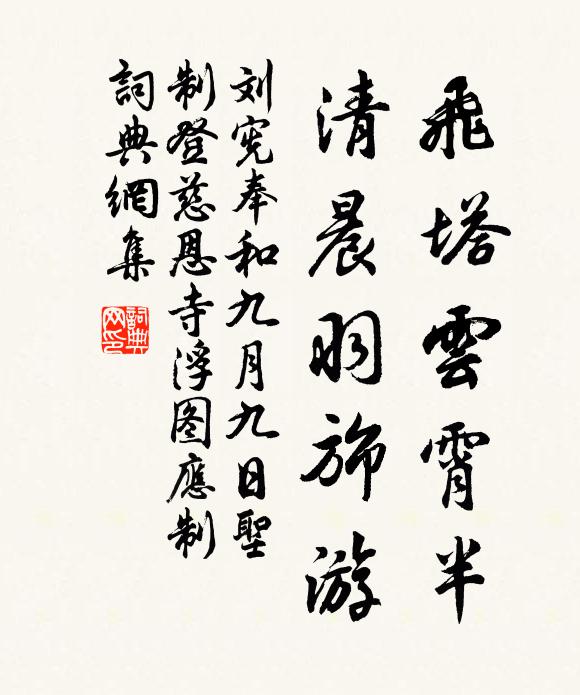 飛塔雲霄半
清晨羽旆游
刘宪奉和九月九日聖
制登慈恩寺浮图應制
詞典網集
詞典
网印